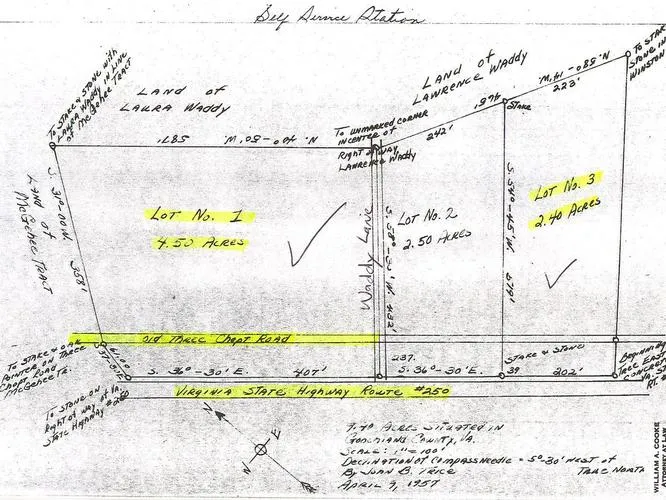 Self Service Station
To Stake & Stone with
Laura Waddy in Line
of McGehee Tract
Land of
Laura Waddy
N. 40°-50' W. 587'
To unmarked corner
in center of
Right of way
Lawrence Waddy
Land of
Lawrence Waddy
242'
Stake
N. 58°-14' W.
223'
To Stake
Stone in
Winston
S. 31°-00' W. 358'
Land of
McGehee Tract
Lot No. 1
4.50 Acres
Waddy Lane
S. 58°-35' W. 482'
Lot No. 2
2.50 Acres
S. 54°-45' W. 679'
Lot No. 3
2.40 Acres
Old Three Chopt Road
To Stake & Oak
Pointer on Three
Chopt Road
McGehee Tr.
S. 36°-30' E. 407'
237.
S. 36°-30' E.
Stake & Stone
39
202'
Beginning
Tree East
Concrete
Va. St
Rt.
Virginia State Highway Route #250
To Stone on
Right of way of Va.
State Highway #250
N
E
9.40 Acres situated in
Goochland County, Va.
Scale: 1" = 100'
Declination of Compass Needle = 5°-30' West of
True North
By John B. Trice
April 9, 1957
WILLIAM A. COOKE
ATTORNEY AT LAW